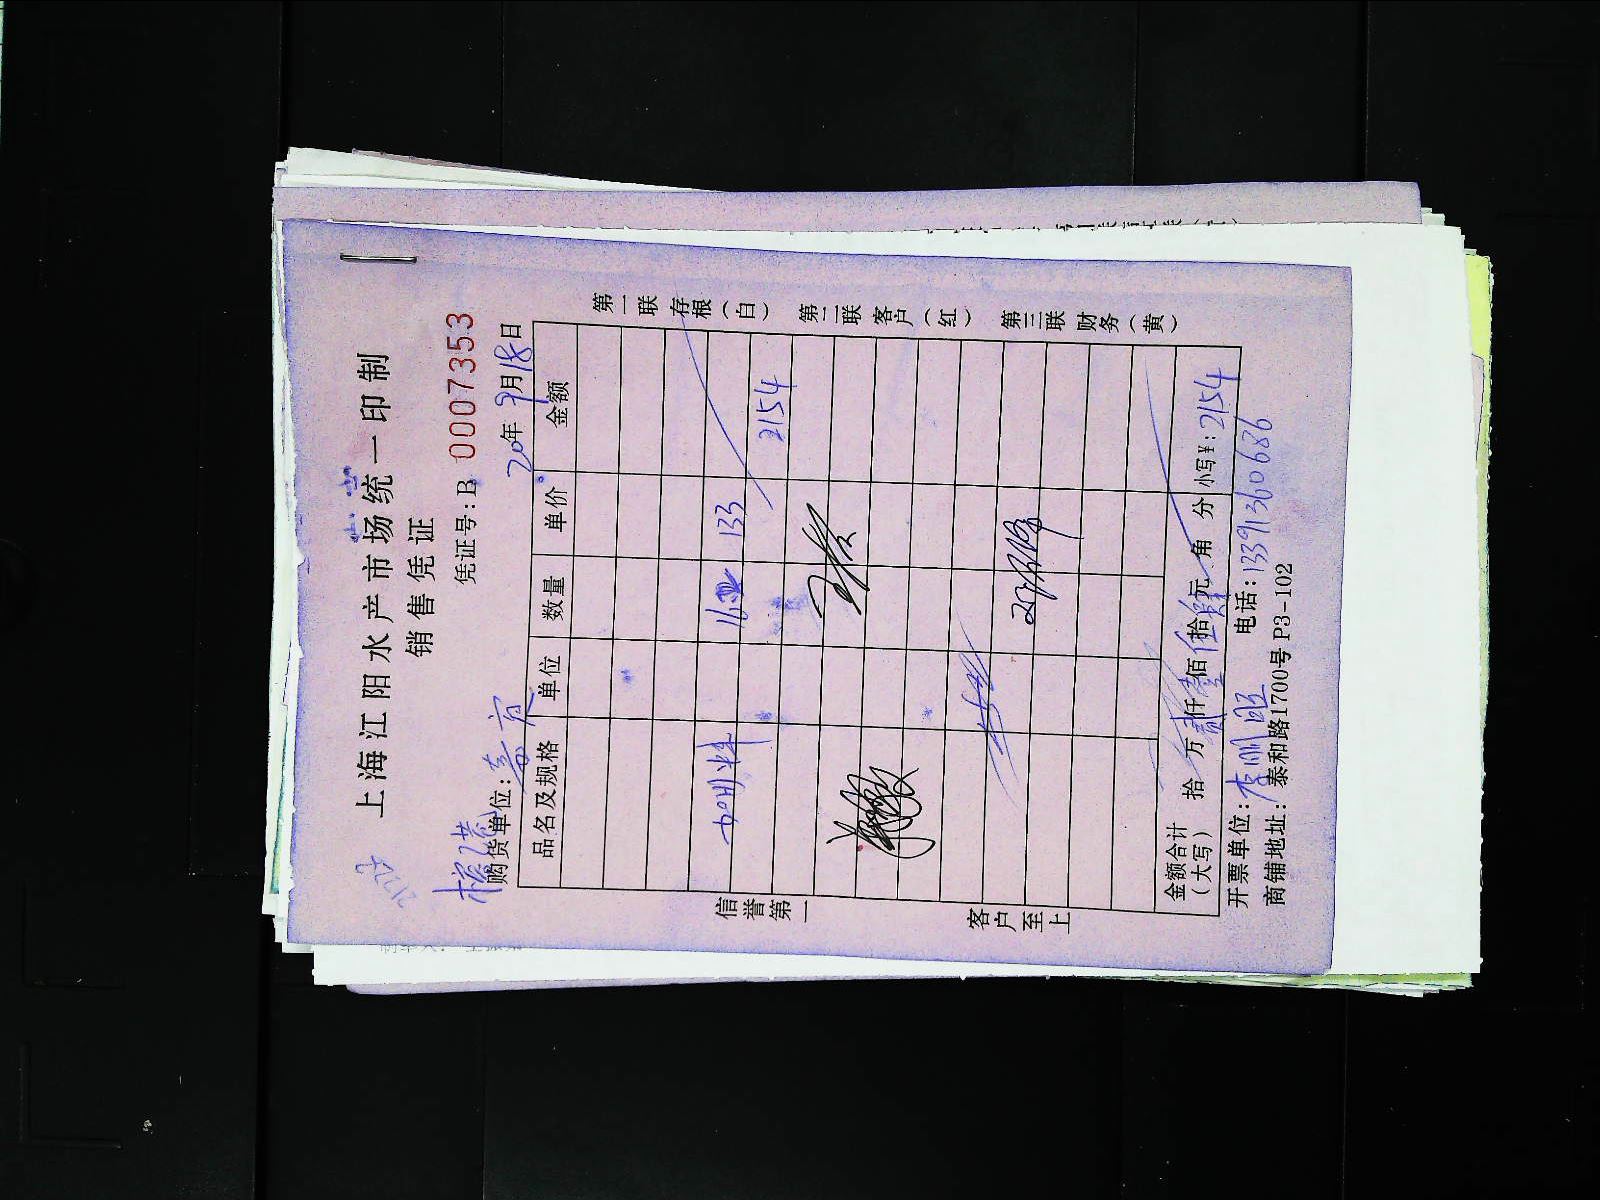 上海江阳水产市场统一印制
销售凭证
凭证号:B 0007353
购货单位:
20年9月18日
品名及规格 单位 数量 单价 金额
133
2154
金额合计
(大写) 拾 万贰仟壹佰伍拾肆元 角 分 小写¥:2154
开票单位: 电话:13391360686
商铺地址:泰和路1700号P3-102
信誉第一
客户至上
第一联 存根(白) 第二联 客户(红) 第三联 财务(黄)